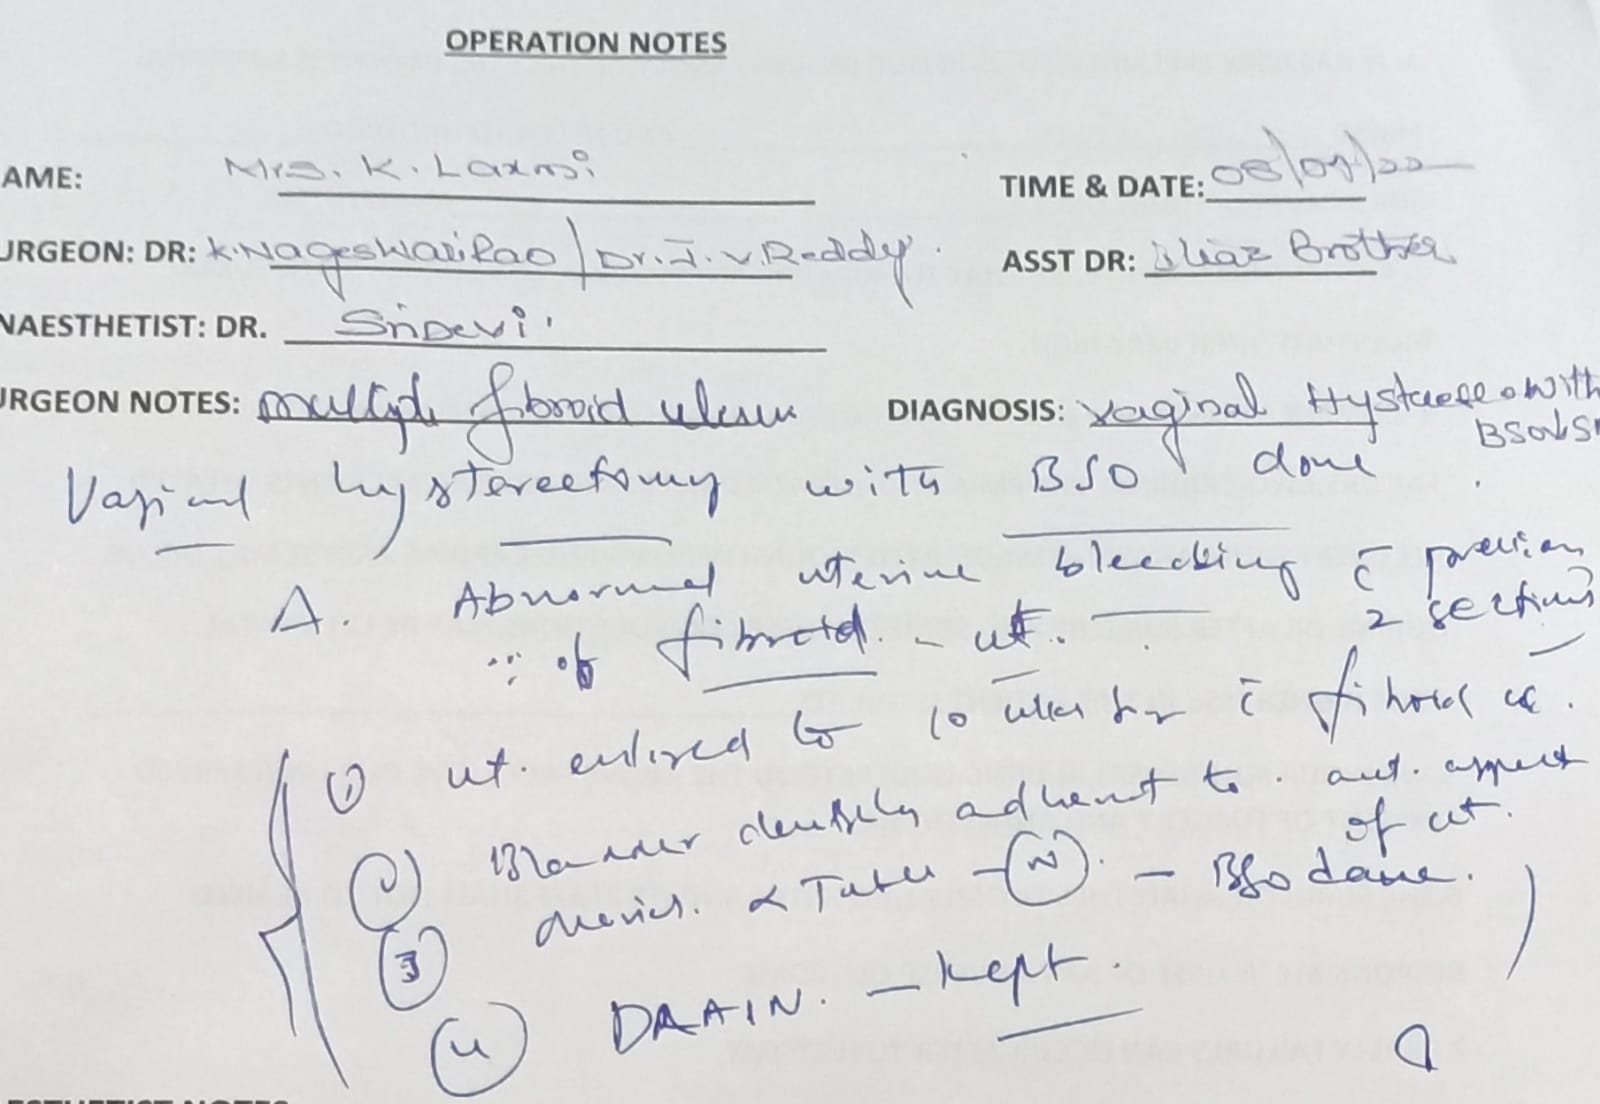 OPERATION NOTES
AME: Mrs. K. Laxmi TIME & DATE: 08/07/22
URGEON: DR: K.Nageswari Rao / Dr. J. V. Reddy. ASST DR: Brother
NAESTHETIST: DR. SriDevi
URGEON NOTES: multiple fibroid uterus DIAGNOSIS: vaginal with
Vaginal hysterectomy with BSO done.
Δ. Abnormal uterine bleeding c̄ previous
∵ of fibroid - ut. 2 sections
1) ut enlarged to 10 weeks size c̄ fibroid
2) Bladder densely adherent to ant aspect
of ut.
3) ovaries & Tubes - (N). - BSO done.
4) DRAIN. - kept.